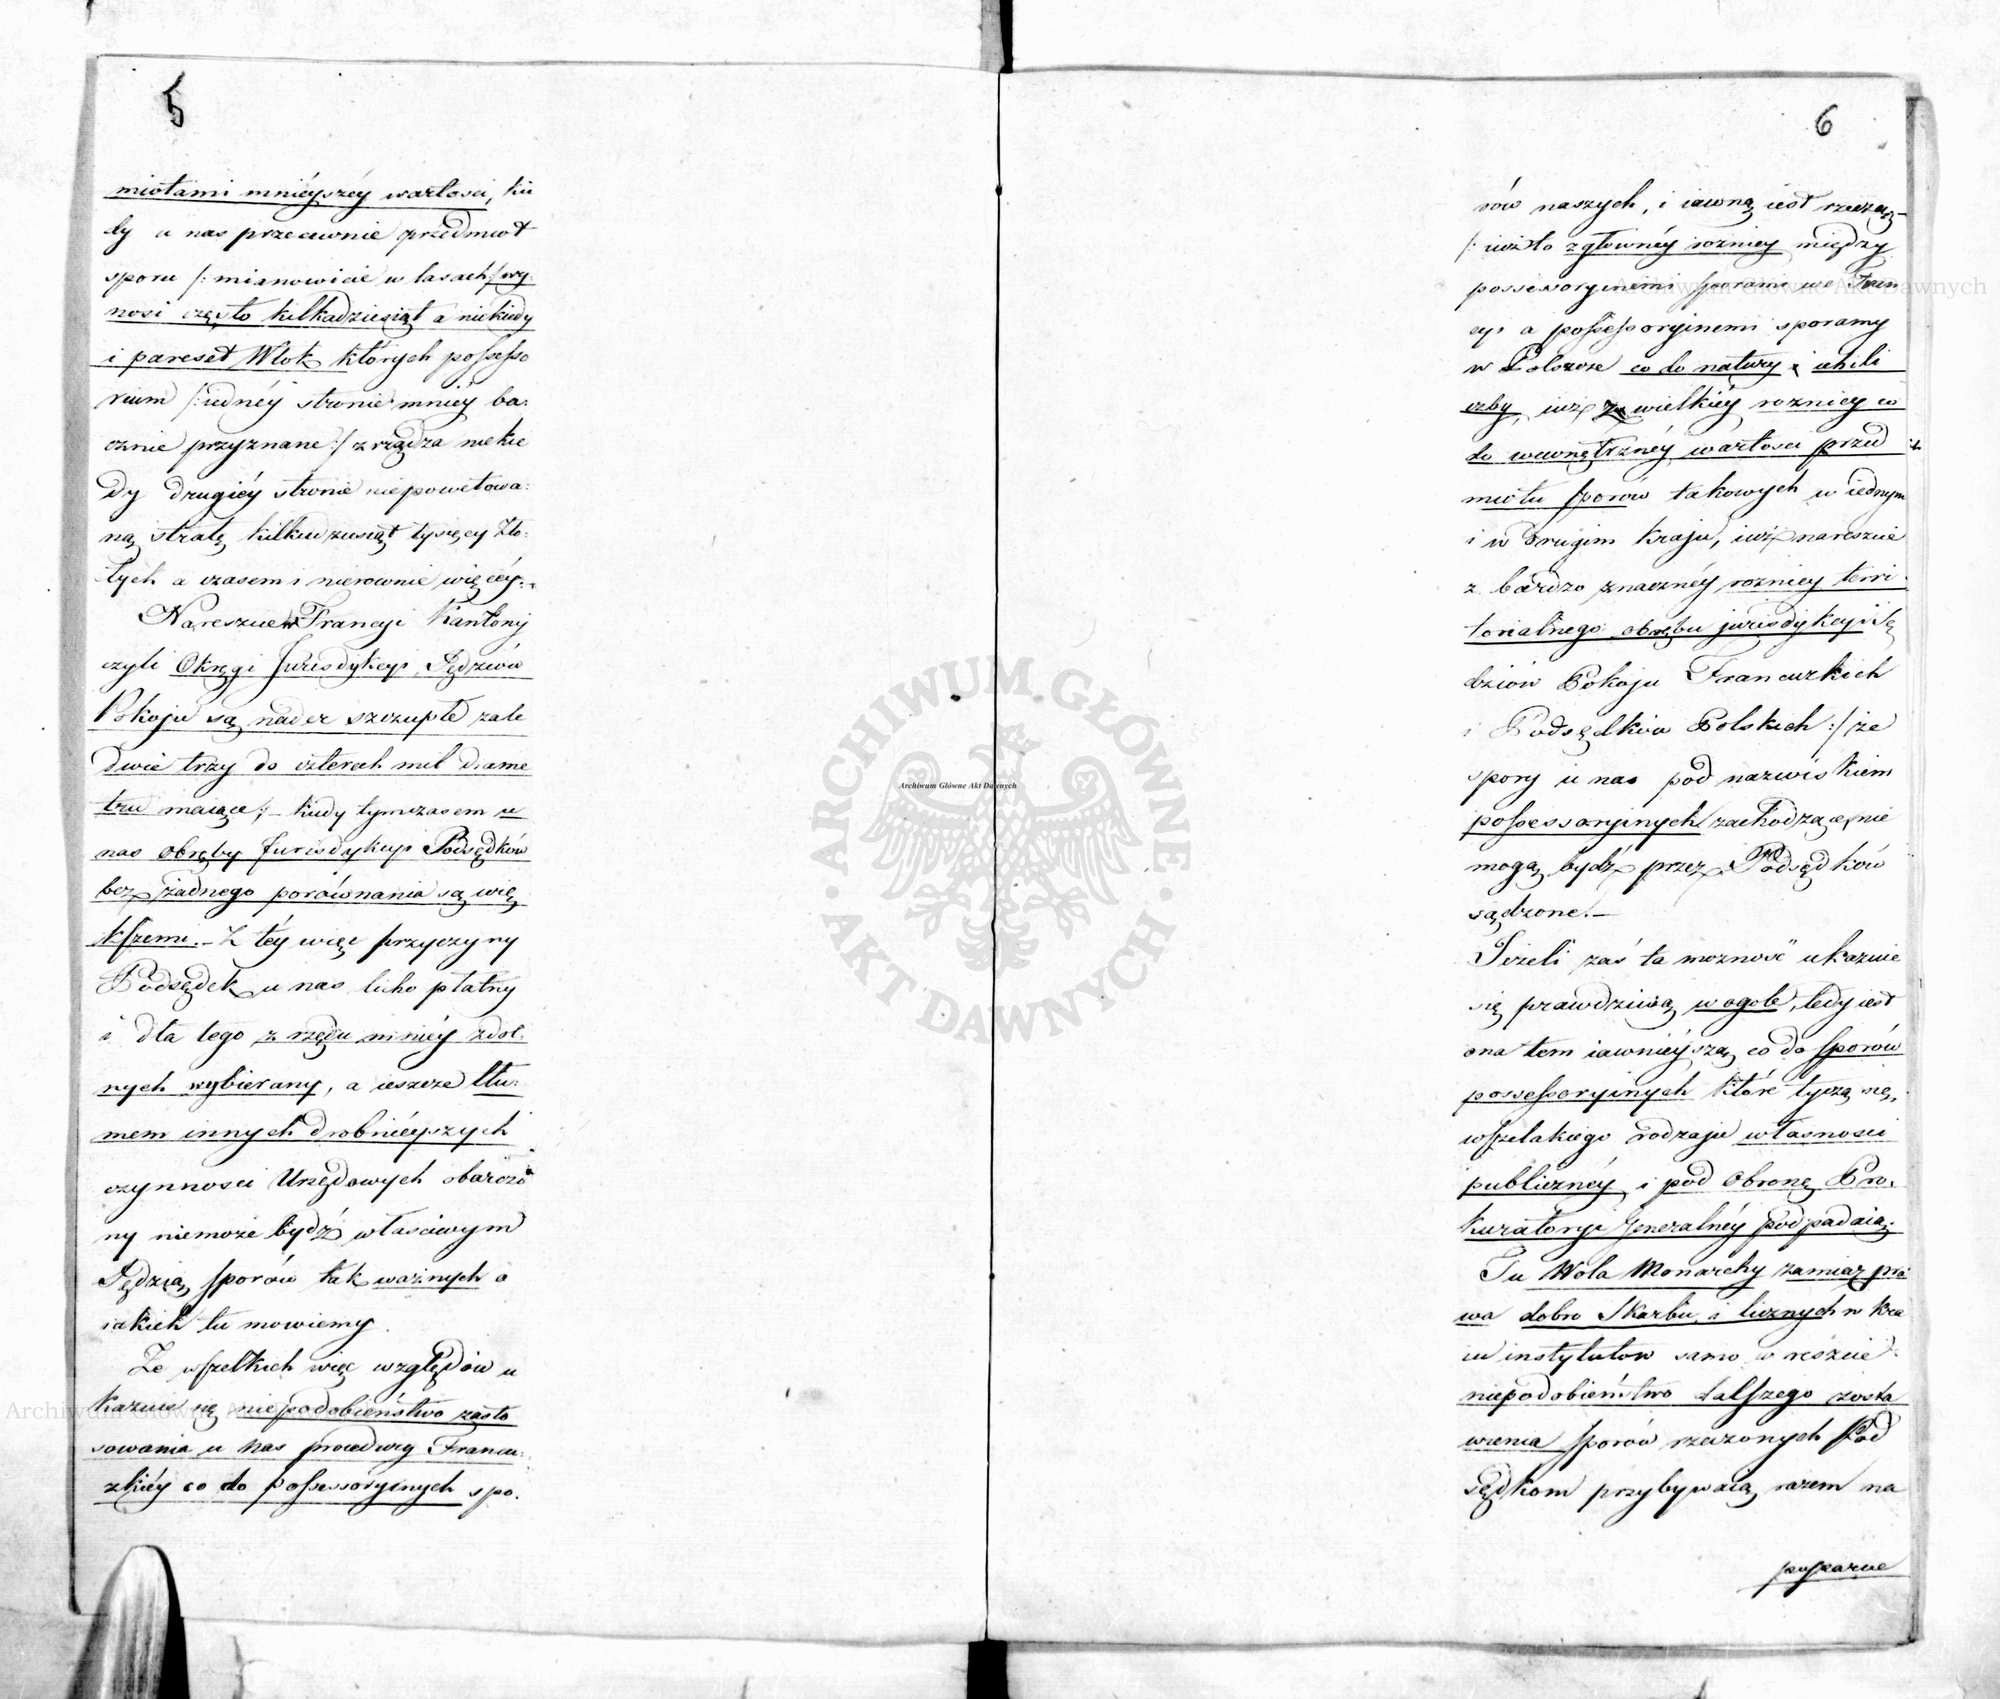 5
miotami mniéyszéy wartosci, kie
dy u nas przeciwnie przedmiot
sporu /: mianowicie w lasach :/ wy:
nosi często kilkadziesiąt a niekiedy
i pareset Włok których possesso
rium /: iednéy stronie mniéy ba:
cznie przyznane :/ zrządza niekie
dy drugiéy stronie niepowetowa:
ną stratę kilkudziesiąt tysięcy Zło:
tych a czasem i nierownie więcéy.
Nareszcie w Francyi Kantony
czyli Okręgi Jurisdykcyi Sędziów
Pokoju są nader szczupłe zale
dwie trzy do czterech mil diame
tru maiące; – kiedy tymczasem u
nas obręby Jurisdykcyi Podsędków
bez żadnego porównania są wię
kszemi. – Z téy więc przyczyny
Podsędek u nas licho płatny
i dla tego z rzędu mniéy zdol:
nych wybierany, a ieszcze tłu:
mem innych drobnieyszych
czynnosci Urzędowych obarczo
ny niemoże bydź własciwym
Sędzią sporów tak ważnych o
iakich tu mowiemy.
Ze wszelkich więc względów u
kazuie się niepodobieństwo zasto
sowania u nas procedury Francu:
zkiéy co do possessoryinych spo.
6
rów naszych, i iawną iest rzeczą –
/: iuż to z głównéy rożnicy między
possessoryinemi sporami we Fran
cyi a possessoryinemi sporamy
w Polszcze co do natury i ich li
czby, iuż z wielkiéy rożnicy co
do wewnętrznéy wartosci przed
miotu sporów takowych w iednym
i w drugim kraju, iuż nareszcie
z bardzo znacznéy rożnicy terri
torialnego obrębu jurisdykcyi Sę
dziów Pokoju Francuzkich
i Podsędków Polskich :/ że
spory u nas pod nazwiskiem
possessoryinych zachodzące, nie
mogą bydź przez Podsędków
sądzone. –
Jeżeli zaś ta możność ukazuie
się prawdziwą w ogole, tedy iest
ona tem iawnieyszą co do sporów
possessoryinych które tyczą się,
wszelakiego rodzaju własnosci
publicznéy i pod Obronę Pro.
kuratoryi Jeneralnéy podpadaią.
Tu Wola Monarchy zamiar pra
wa dobro Skarbu, i licznych w kra
iu instytutow samo w reszcie
niepodobieństwo dalszego zosta
wienia sporów rzeczonych Pod
sędkom przybywaią razem na
Archiwum Główne Akt Dawnych
ARCHIWUM GŁÓWNE • AKT DAWNYCH •